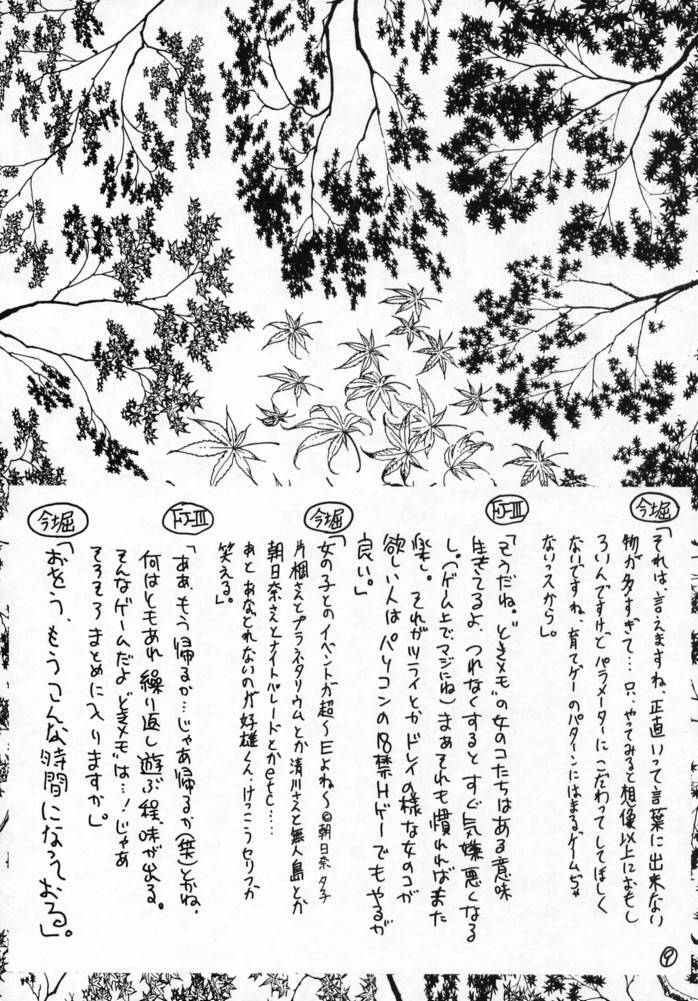 今堀
「それは、言えますね、正直いって言葉に出来ない
物が多すぎて…只、やてみると想像以上におもし
ろいんですけどパラメーターにこだわってしてほしく
ないですね、育てゲーのパターンにはまるゲームぢゃ
ないっスから」。
FJ-III
「そうだね。"ときメモ"の女のコたちはある意味
生きてるよ、つれなくすると すぐ気嫌悪くなる
し。(ゲーム上でマジにね)まあそれも慣れればまた
楽し。それがツライとかドレイの様な女のコが
欲しい人はパソコンの18禁Hゲーでもやるが
良い。」
今堀
「女の子とのイベントが超〜Eよね〜©朝日奈夕子
片桐さんとプラネタリウムとか清川さんと無人島とか
朝日奈さんとナイトパレードとかetc……
あと、あなどれないのが好雄くん、けっこうセリフが
笑える」。
FJ-III
「ああ、もう帰るか…じゃあ帰るか(笑)とかね、
何はともあれ繰り返し遊ぶ程、味が出る。
そんなゲームだよ"ときメモ"は…!じゃあ
そろそろまとめに入りますか。」
今堀
「おぞう、もうこんな時間になっておる」。
9